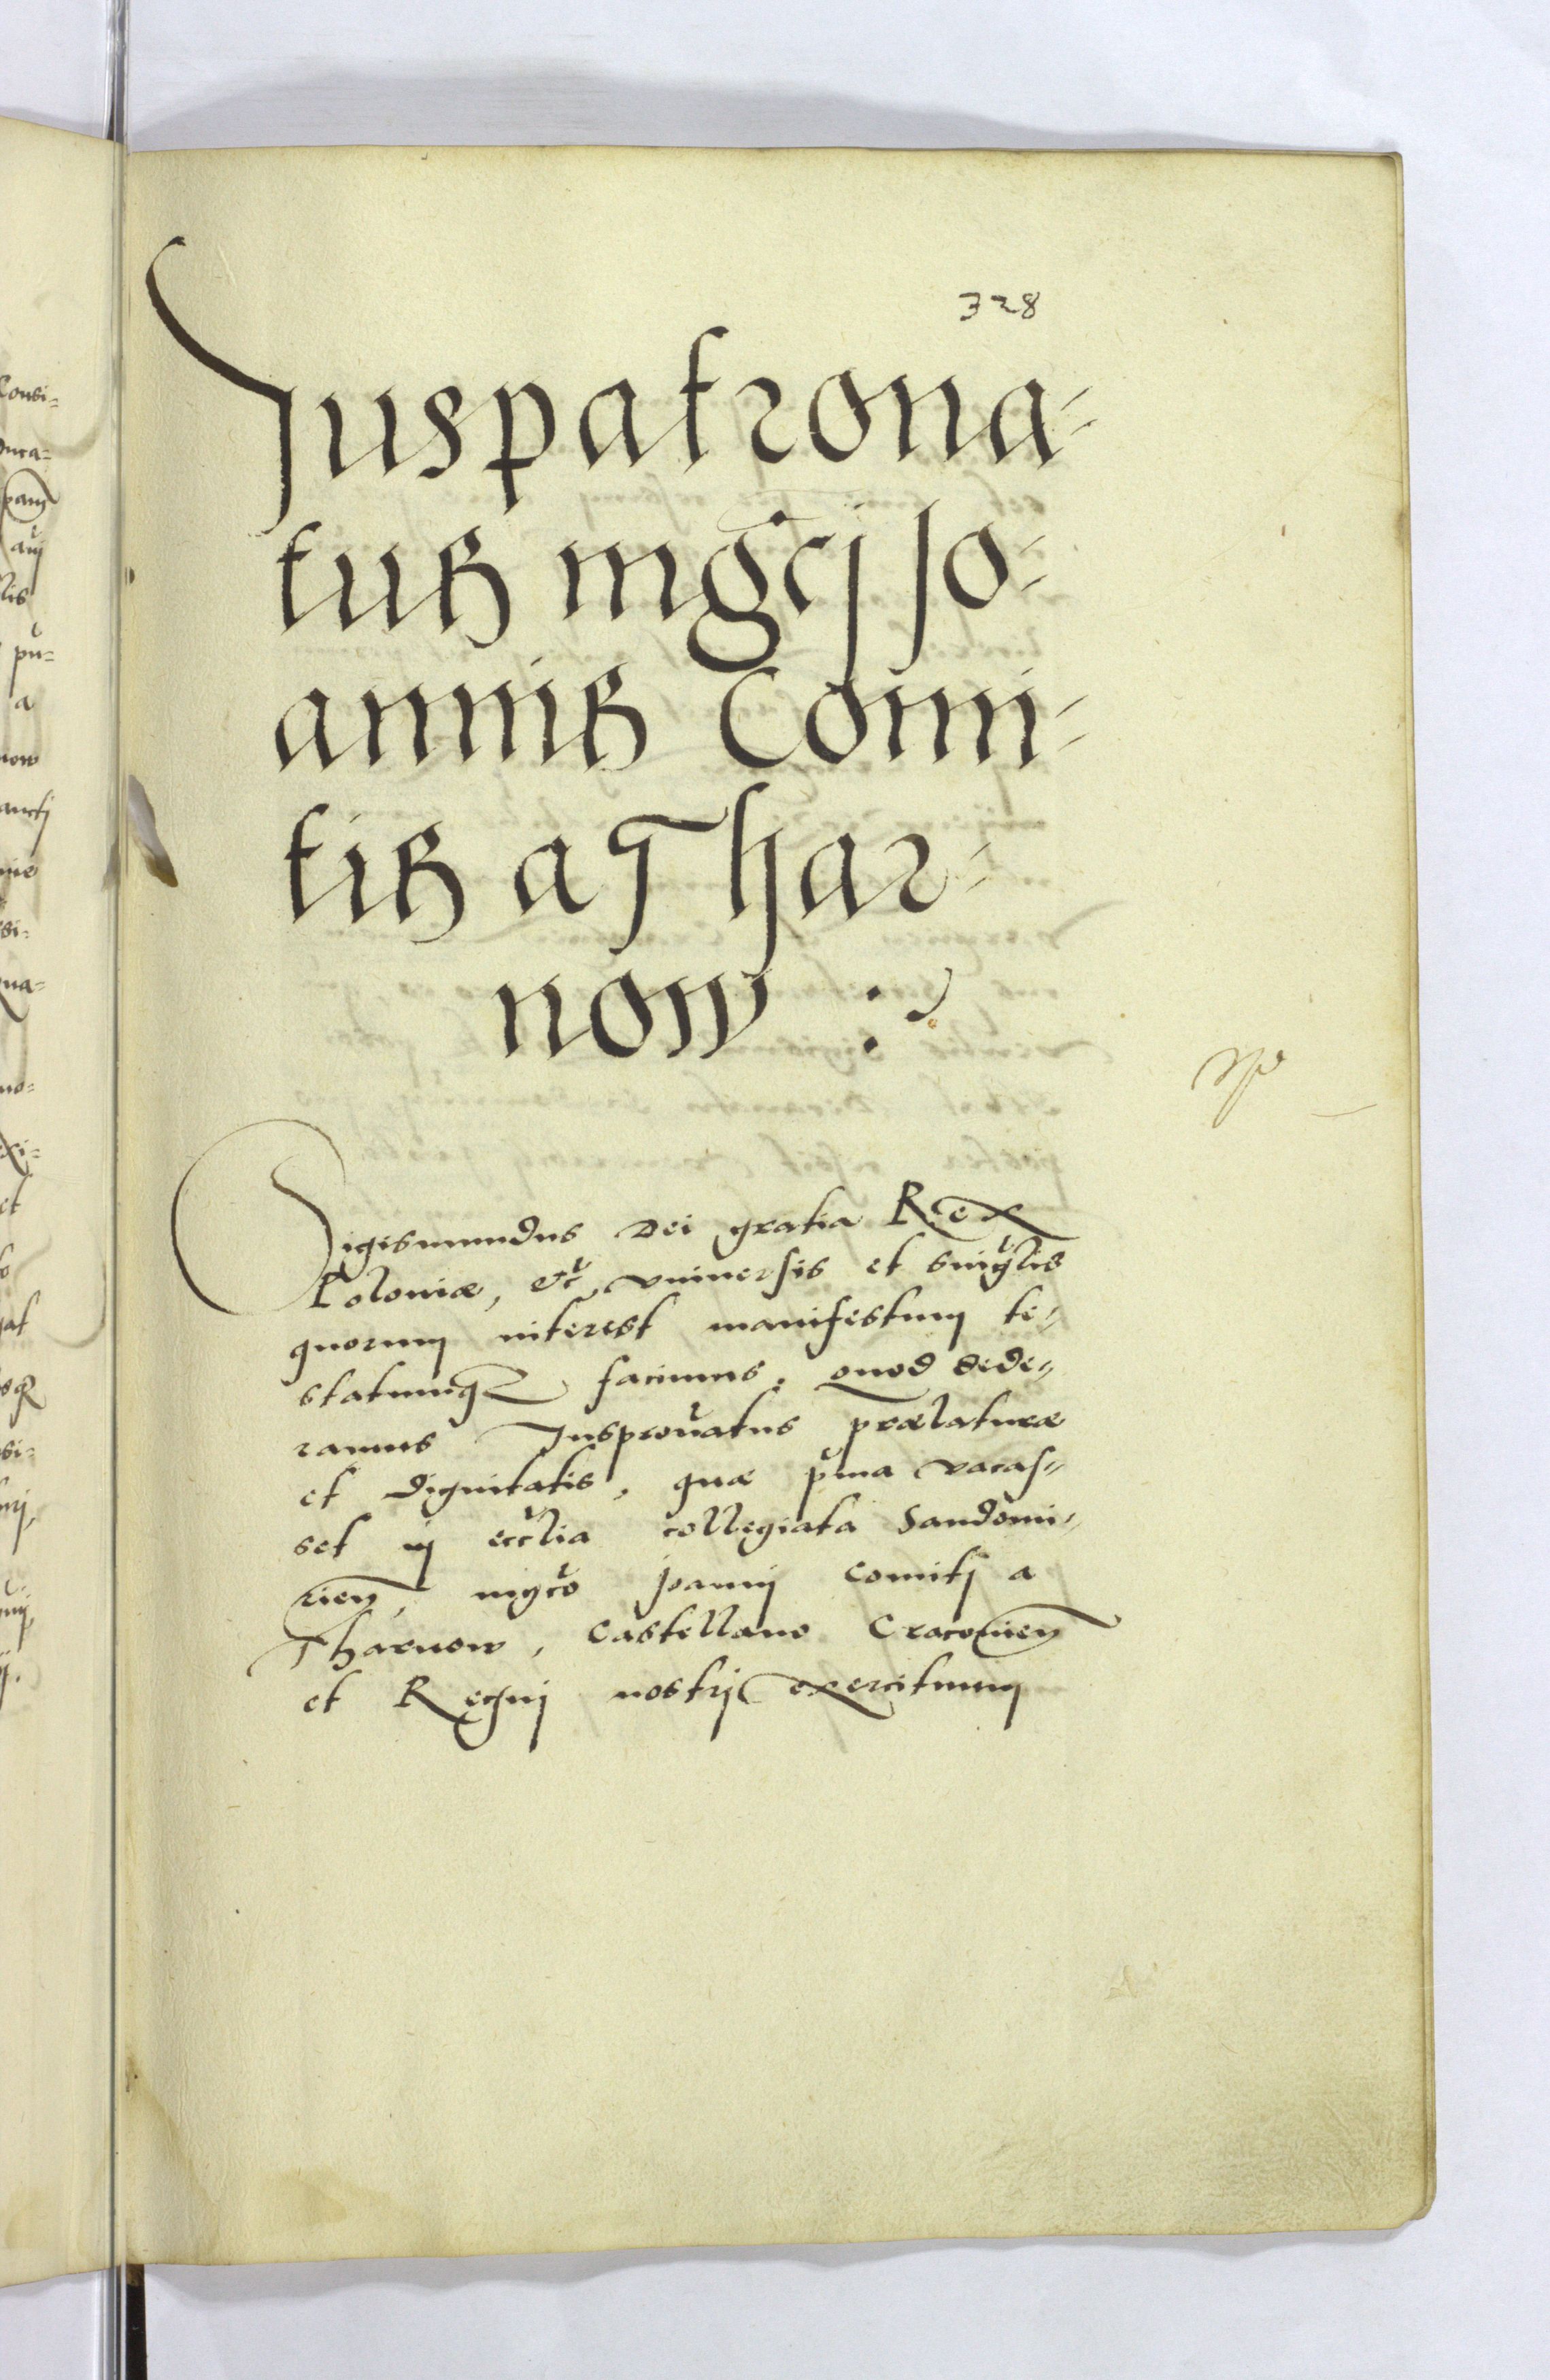 328
Juspatrona-
tus mgci Jo-
annis Comi-
tis a Thar-
now :
Sigismundus Dei gratia Rex
Poloniæ, etc. vniuersis et sing̃lis
quorum interest manifestum te-
statumq₃ facimus. Quod dede-
ramus Juspron̄atus prælaturæ
et dignitatis, quæ p̃ma vacas-
set in eccl̃ia collegiata Sandomi-
rien̄, mgc̃o Joanni Comiti a
Tharnow, Castellano Cracovien̄
et Regni nostri exercituum